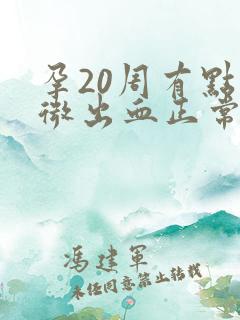 孕20周有點
微出血正常
馮建軍
未經同意禁止轉載